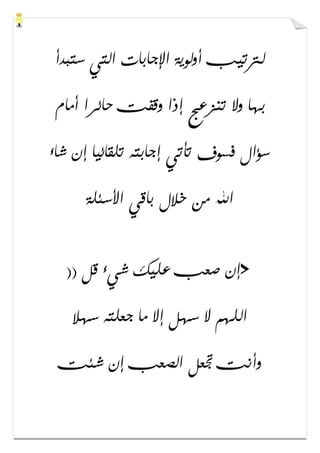 لترتيب أولوية الإجابات التي ستبدأ
بها ولا تنزعج إذا وقفت حائرا أمام
سؤال فسوف تأتي إجابته تلقائيا إن شاء
الله من خلال باقي الأسئلة
>إن صعب عليك شيء قل ((
اللهم لا سهل إلا ما جعلته سهلا
وأنت تجعل الصعب إن شئت